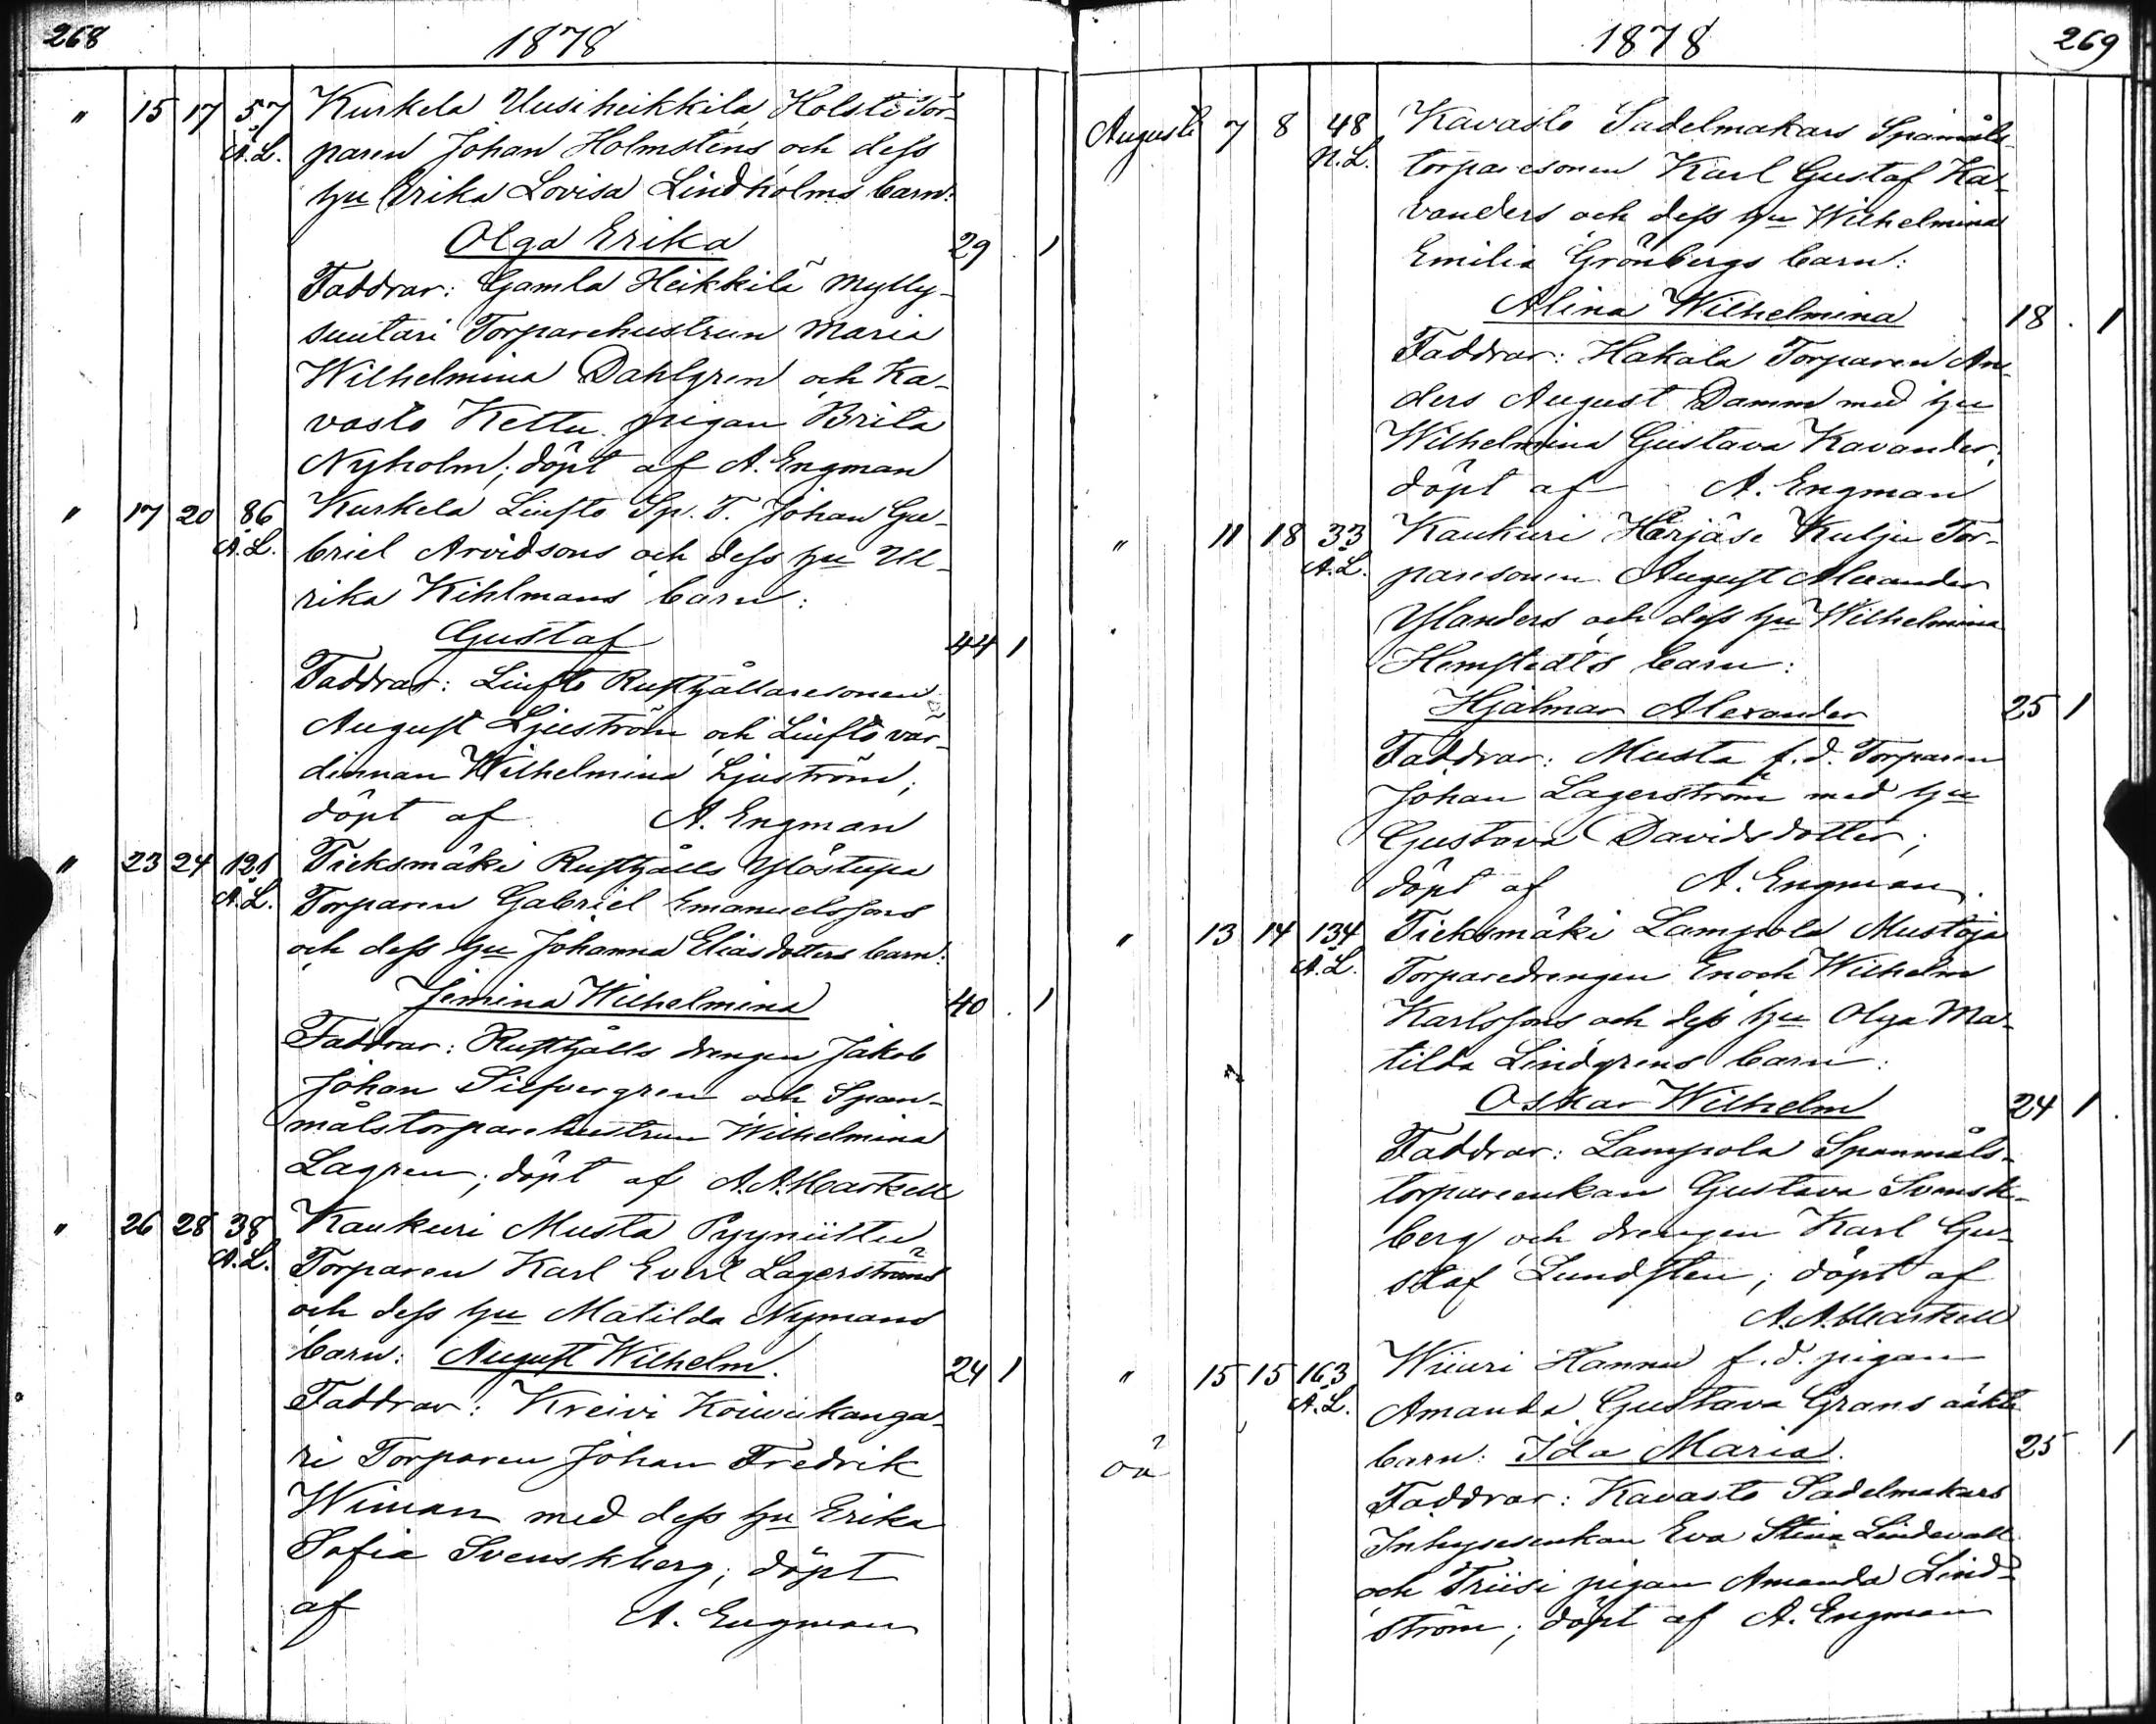 268
1878
" 15 17 57 Kurkela Uusiheikkilä Holsti Tor-
A.L. paren Johan Holmsténs och dess
hu Erika Lovisa Lindholms barn:
Olga Erika 29 1
Faddrar: Gamla Heikkilä Mylly-
suutari Torparehustrun Maria
Wilhelmina Dahlgren och Ka-
vasto Kettu pigan Brita
Nyholm; döpt af A. Engman
" 17 20 86 Kurkela Liusto Sp. T. Johan Ga-
A.L. briel Arvidsons och dess hu Ul-
rika Kihlmans barn:
Gustaf 44 1
Faddrar: Liusto Rusthållaresonen
August Ljuström och Liusto vär-
dinnan Wilhelmina Ljuström;
döpt af A. Engman
" 23 24 121 Tieksmäki Rusthålls Ylöstupa
A.L. Torparen Gabriel Emanuelssons
och dess hu Johanna Eliasdotters barn:
Jemina Wilhelmina 40 1
Faddrar: Rusthålls drengen Jakob
Johan Silfvergren och Span-
målstorparehustrun Wilhelmina
Lagren; döpt af A.A. Markell
" 26 28 38 Kaukuri Musta Pyyniittu
A.L. Torparen Karl Evert Lagerströms
och dess hu Matilda Nymans
barn: August Wilhelm. 24 1
Faddrar: Kreivi Koivukanga-
ri Torparen Johan Fredrik
Wiman med dess hu Erika
Sofia Svenskberg; döpt
af A. Engman
1878
269
Augusti 7 8 48 Kavasto Sadelmakars Spanmåls-
N.L. torparesonen Karl Gustaf Ka-
vanders och dess hu Wilhelmina
Emilia Grönbergs barn:
Alina Wilhelmina 18 1
Faddrar: Hakala Torparen An-
ders August Damm med hu
Wilhelmina Gustava Kavander;
döpt af A. Engman
" 11 18 33 Kaukuri Härjäse Kulju Tor-
A.L. paresonen August Alexander
Ylanders och dess hu Wilhelmina
Hemstedts barn:
Hjalmar Alexander 25 1
Faddrar: Musta f.d. Torparen
Johan Lagerström med hu
Gustava Davidsdotter;
döpt af A. Engman.
" 13 14 134 Tieksmäki Lampola Mustoja
A.L. Torparedrengen Enoch Wilhelm
Karlssons och dess hu Olga Ma-
tilda Lindgrens barn:
Oskar Wilhelm 24 1
Faddrar: Lampola Spanmåls-
torpareenkan Gustava Svensk-
berg och drengen Karl Gu-
staf Lundsten; döpt af
A.A. Markell
" 15 15 163 Wiuri Hannu f.d. pigan
A.L. Amanda Gustava Grans oäkta
oä barn: Ida Maria. 25 1
Faddrar: Kavasto Sadelmakars
Inhysesenkan Eva Stina Lindevall
och Triisi pigan Amanda Lind-
ström; döpt af A. Engman